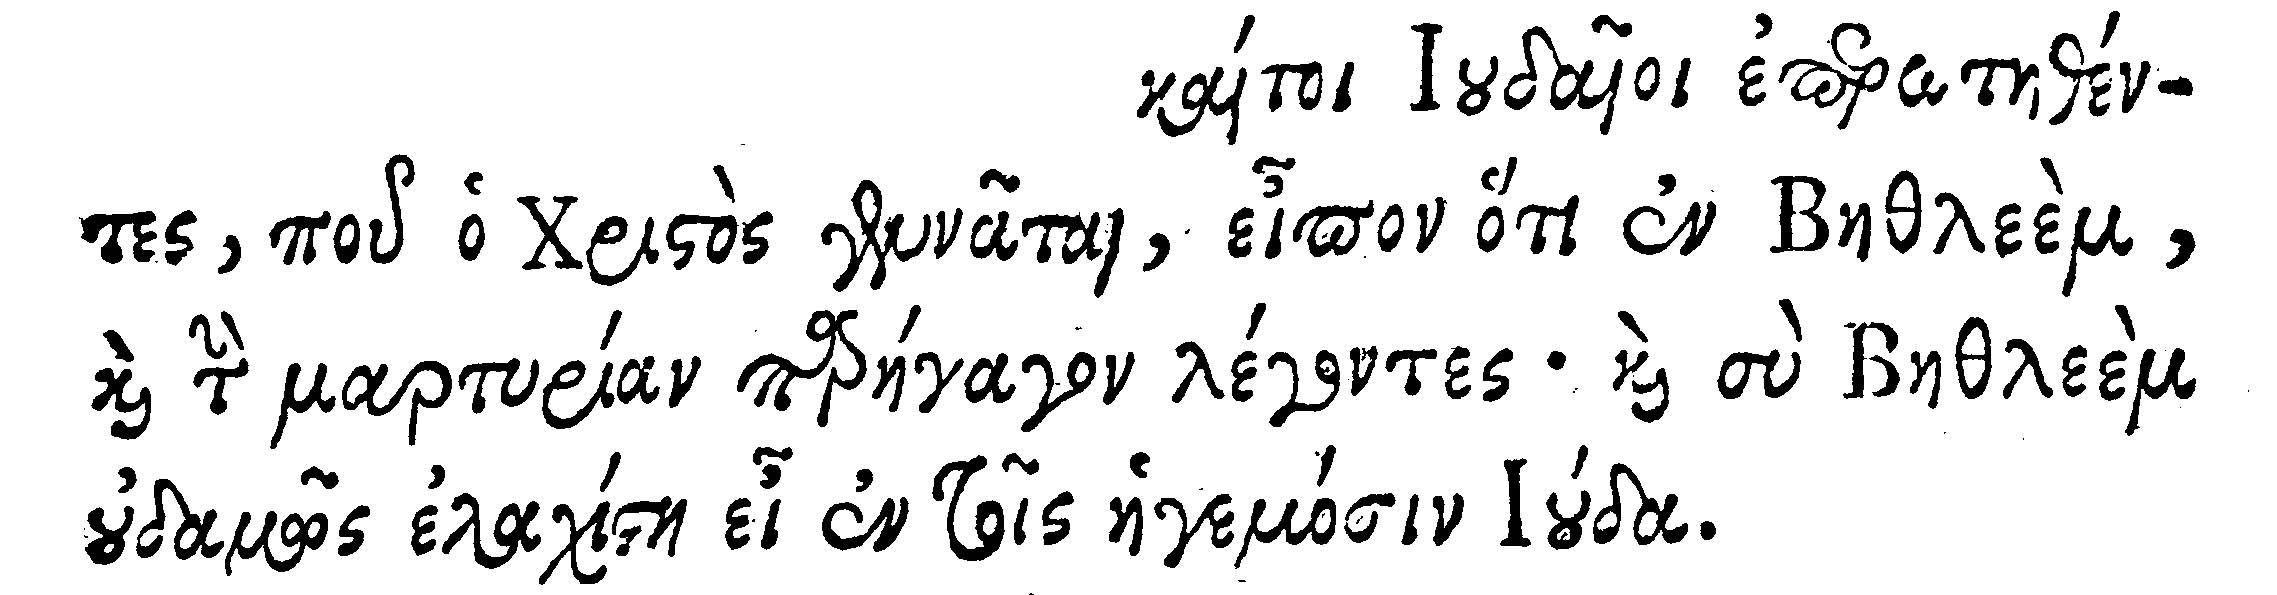 καίτοι Ιουδαῖοι ἐπερωτηθέν-
τες, ποῦ ὁ Χριστὸς γεννᾶται, εἶπον ὅτι ἐν Βηθλεὲμ,
καὶ τὴν μαρτυρίαν παρήγαγον λέγοντες· καὶ σὺ Βηθλεὲμ
οὐδαμῶς ἐλαχίστη εἶ ἐν τοῖς ἡγεμόσιν Ιούδα.